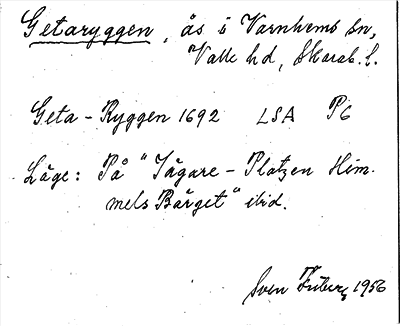 Getaryggen, ås i Varnhems sn,
Valle hd, Skarab. l.
Geta-Ryggen 1692 LSA P6
Läge: På "Jägare-Platzen Him-
mels Bärget" ibid.
Sven Fiberg 1956